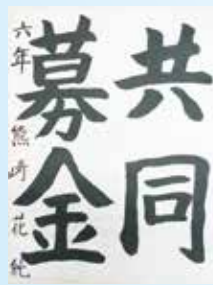 共同
募金
六年 熊崎花純